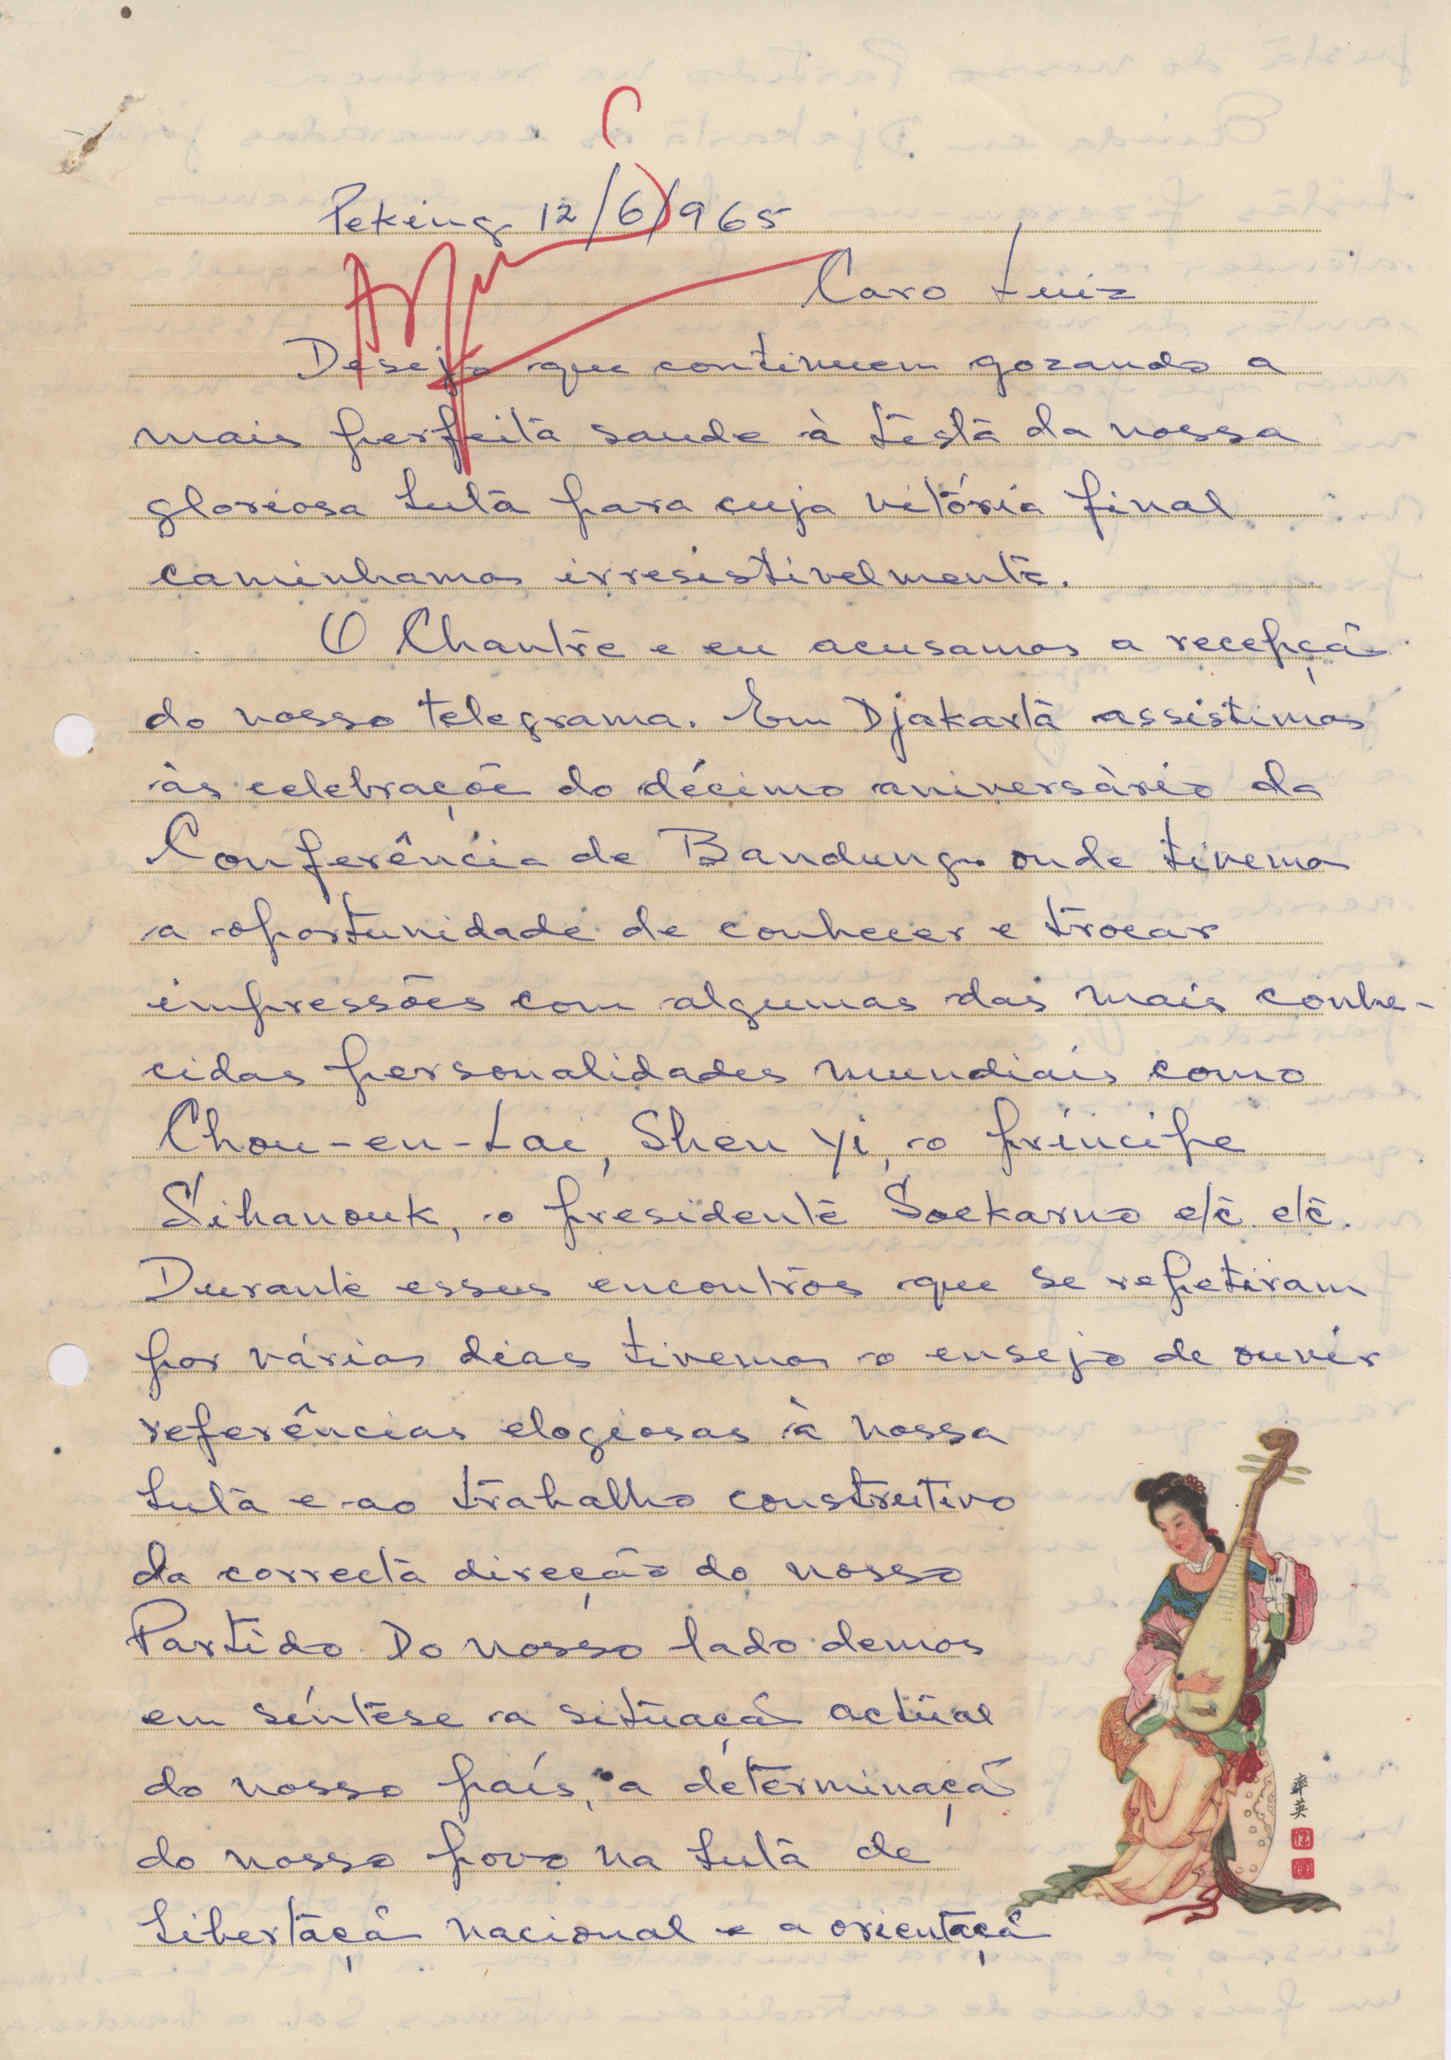 Peking 12/6/965
Caro Luiz
Desejo que continuem gozando a
mais perfeita saude à testa da nossa
gloriosa luta para cuja vitória final
caminhamos irresistivelmente.
O Chantre e eu acusamos a recepçã
do vosso telegrama. Em Djakarta assistimos
às celebraçõe do décimo aniversàrio da
Conferência de Bandung. onde tivemos
a oportunidade de conhecer e trocar
impressões com algumas das mais conhe-
cidas personalidades mundiais como
Chou-en-Lai, Shen Yi, o príncipe
Sihanouk, o presidente Soekarno etc. etc.
Durante esses encontros que se repetiram
por vários dias tivemos o ensejo de ouvir
referências elogiosas à nossa
luta e ao trabalho construtivo
da correcta direcção do nosso
Partido Do nosso lado demos
em síntese a situaçã actual
do nosso país, a determinaçã
do nosso povo na luta de
libertaçã nacional e a orientaçã